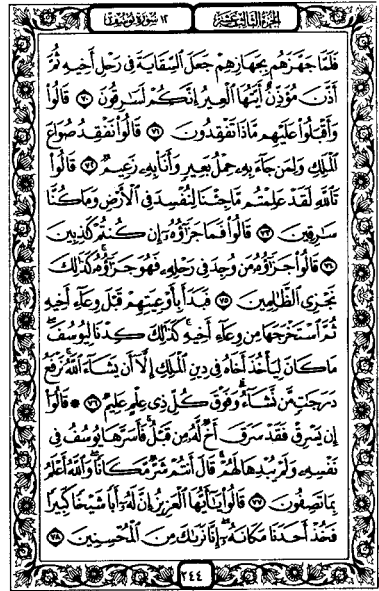 الجزء الثالث عشر
١٢ سورة يوسف
فَلَمَّا جَهَّزَهُم بِجَهَازِهِمْ جَعَلَ السِّقَايَةَ فِي رَحْلِ أَخِيهِ ثُمَّ
أَذَّنَ مُؤَذِّنٌ أَيَّتُهَا الْعِيرُ إِنَّكُمْ لَسَارِقُونَ ٧٠ قَالُوا
وَأَقْبَلُوا عَلَيْهِم مَّاذَا تَفْقِدُونَ ٧١ قَالُوا نَفْقِدُ صُوَاعَ
الْمَلِكِ وَلِمَن جَاءَ بِهِ حِمْلُ بَعِيرٍ وَأَنَا بِهِ زَعِيمٌ ٧٢ قَالُوا
تَاللَّهِ لَقَدْ عَلِمْتُم مَّا جِئْنَا لِنُفْسِدَ فِي الْأَرْضِ وَمَا كُنَّا
سَارِقِينَ ٧٣ قَالُوا فَمَا جَزَاؤُهُ إِن كُنتُمْ كَاذِبِينَ
٧٤ قَالُوا جَزَاؤُهُ مَن وُجِدَ فِي رَحْلِهِ فَهُوَ جَزَاؤُهُ كَذَلِكَ
نَجْزِي الظَّالِمِينَ ٧٥ فَبَدَأَ بِأَوْعِيَتِهِمْ قَبْلَ وِعَاءِ أَخِيهِ
ثُمَّ اسْتَخْرَجَهَا مِن وِعَاءِ أَخِيهِ كَذَلِكَ كِدْنَا لِيُوسُفَ
مَا كَانَ لِيَأْخُذَ أَخَاهُ فِي دِينِ الْمَلِكِ إِلَّا أَن يَشَاءَ اللَّهُ نَرْفَعُ
دَرَجَاتٍ مَّن نَّشَاءُ وَفَوْقَ كُلِّ ذِي عِلْمٍ عَلِيمٌ ٧٦ ۞ قَالُوا
إِن يَسْرِقْ فَقَدْ سَرَقَ أَخٌ لَّهُ مِن قَبْلُ فَأَسَرَّهَا يُوسُفُ فِي
نَفْسِهِ وَلَمْ يُبْدِهَا لَهُمْ قَالَ أَنتُمْ شَرٌّ مَّكَانًا وَاللَّهُ أَعْلَمُ
بِمَا تَصِفُونَ ٧٧ قَالُوا يَا أَيُّهَا الْعَزِيزُ إِنَّ لَهُ أَبًا شَيْخًا كَبِيرًا
فَخُذْ أَحَدَنَا مَكَانَهُ إِنَّا نَرَاكَ مِنَ الْمُحْسِنِينَ ٧٨
٢٤٤